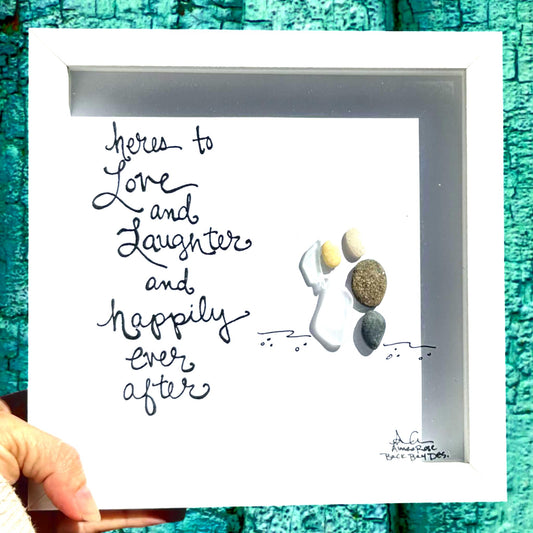 heres to
Love
and
Laughter
and
happily
ever
after
Back Bay Des.